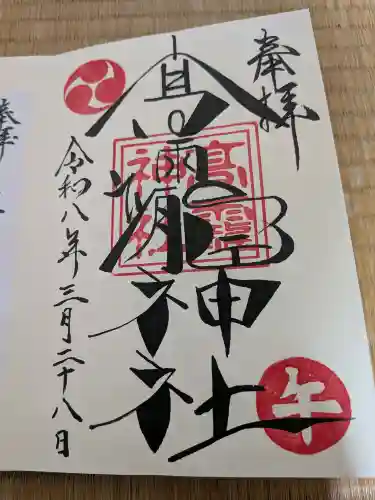 奉拝
高龗神社
高龗
神社
令和八年三月二十八日
午
奉拝